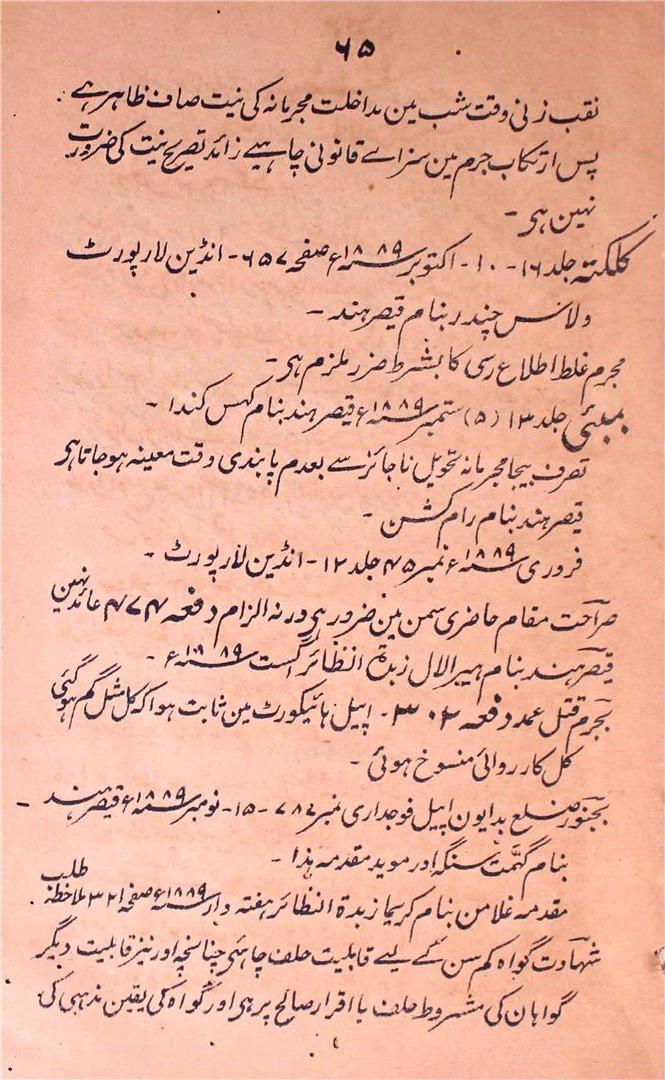 ۶۵
نقب زنی وقت شب مین مداخلت مجرمانہ کی نیت صاف ظاہر ہے .
پس ارتکاب جرم مین سزاے قانونی چاہیے زائد تصریح نیت کی ضرورت
نہین ہی -
کلکتہ جلد ۱۶ - ۱۰ - اکتوبر سنہ ۱۸۸۹ع صفحہ ۶۵۷ - انڈین لا رپورٹ
ولانس چندر بنام قیصر ہند -
مجرم غلط اطلاع رسی کا بشرط ضرر ملزم ہی -
بمبئی جلد ۱۳ (۵) ستمبر سنہ ۱۸۸۹ع قیصر ہند بنام کہس کندا -
تصرف بیجا مجرمانہ تحویل ناجائز سے بعدم پابندی وقت معینہ ہو جاتا ہی
قیصر ہند بنام رام کشن -
فروری سنہ ۱۸۸۹ع نمبر ۴۵ جلد ۱۲ - انڈین لا رپورٹ -
صراحت مقام حاضری سمن مین ضرور ہی ورنہ الزام دفعہ ۱۷۴ عائد نہین
قیصر ہند بنام ہیرا لال زبدۃ النظائر اگست سنہ ۱۸۸۹ع -
بجرم قتل عمد دفعہ ۳۰۲ - اپیل ہائیکورٹ مین ثابت ہوا کہ کل مثل گم ہو گئی
کل کارروائی منسوخ ہوئی -
بجنور ضلع بدایون اپیل فوجداری نمبر ۷۸۷ - ۱۵ - نومبر سنہ ۱۸۸۹ع قیصر ہند -
بنام گہمت سنگہ اور موید مقدمہ ہذا -
مقدمہ غلامن بنام کریما زبدۃ النظائر ہفتہ وار سنہ ۱۸۸۹ع صفحہ ۳۲۱ ملاحظہ طلب
شہادت گواہ کم سن کے لیے قابلیت حلف چاہئی چنانچہ اور نیز قابلیت دیگر
گواہان کی مشروط حلف یا اقرار صالح پر ہی اور گواہ کی یقین مذہبی کی